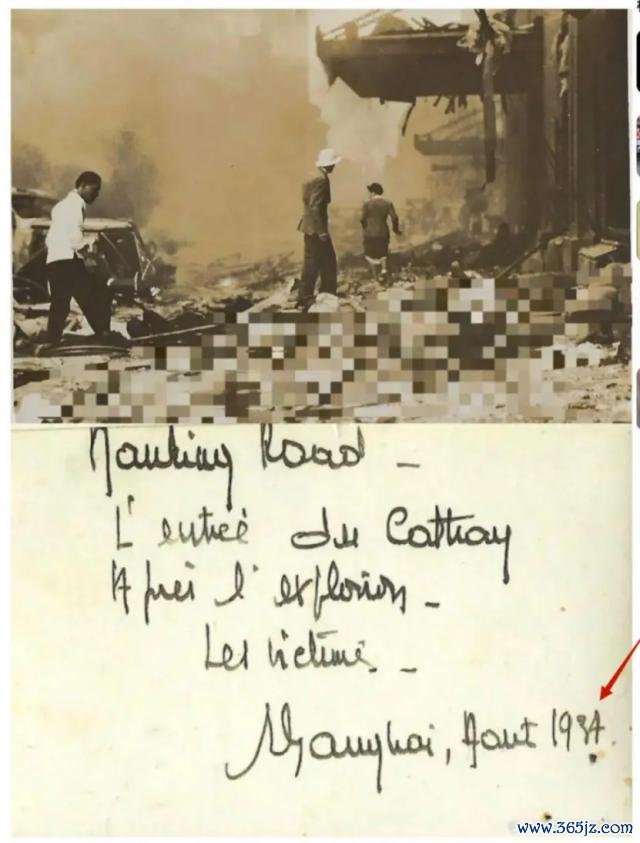 Nanking Road –
L'entrée du Cathay
Après l'explosion –
Les victimes –
Shanghai, Aout 1937
www.365jz.com